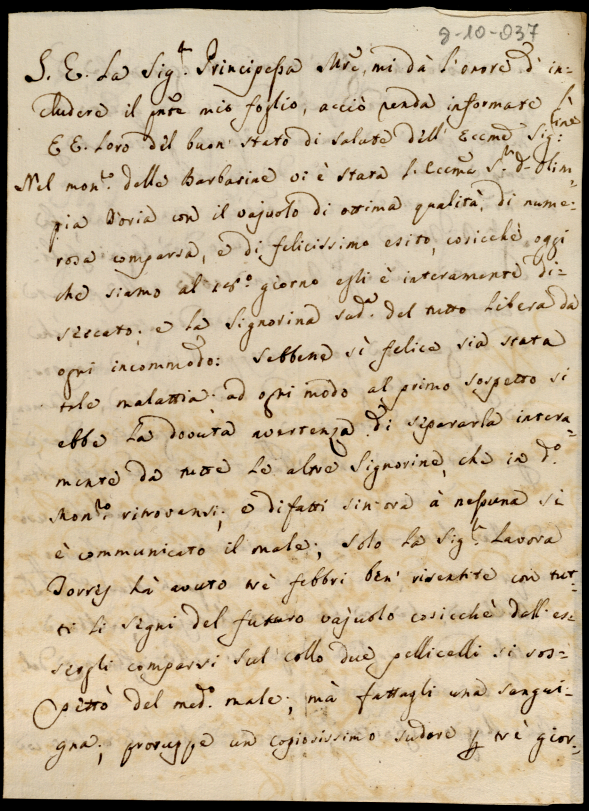 9-10-037
S. E. La Sig.ra Principessa Mre, mi dà l'onore d'in=
cludere il pnte mio foglio, acciò renda informate l'
E E. Loro del buon' stato di salute dell' Eccme Sig:rine
Nel mon.o delle Barbarine vi è stata l'Eccma S.ra D. Olim=
pia Doria con il vajuolo di ottima qualità, di nume=
rosa comparsa, e di felicissimo esito, cosicchè oggi
che siamo al giorno egli è interamente di=
seccato; e la Signorina sud.a del tutto libera da
ogni incommodo: Sebbene sì felice sia stata
tale malattia ad ogni modo al primo sospetto si
ebbe la dovuta avertenza di separarla intera=
mente da tutte le altre Signorine, che in d.o
Mon.ro ritrovansi; e difatti sin'ora à nessuna si
è communicato il male; solo la Sig.ra Lavora
Torres hà avuto trè febbri ben' risentite con tut=
ti li segni del futuro vajuolo cosicchè dall'es=
sergli comparsi sul collo due pellicelli si sos=
pettò del med.o male; mà fattagli una sangui=
gna; proruppe un copiosissimo sudore p trè gior=